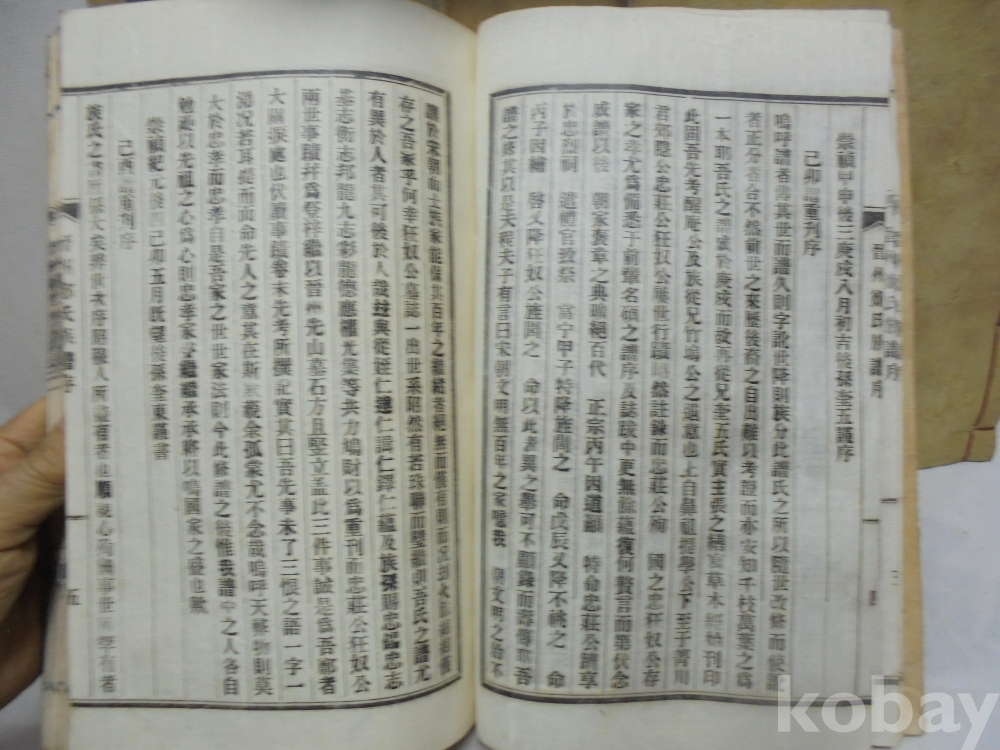 崇禎甲申後三庚戌八月初吉後孫奎五謹序
己卯譜重刊序
嗚呼譜者傳其世而譜久則字訛世降則族分此譜氏之所以隨世改修而使訛
者正分者合不然前世之來歷後裔之自出難以考證而亦安知千枝萬葉之爲
一本耶吾氏之譜成於庚戌而故再從兄奎五氏實主張之繕寫草本經始刊印
此固吾先考醒庵公及族從兄竹塢公之遺意也上自鼻祖提學公下至于菁川
君郊隱公忠莊公狂奴公歷世行蹟晧然註錄而忠莊公殉 國之忠狂奴公存
家之孝尤爲備悉于前輩名碩之譜序及誌跋中更無餘蘊復何贅言而第伏念
成譜以後 朝家褒章之典曠絕百代 正宗丙午 因道顯 特命忠莊公躋享
於忠烈祠 遣禮官致祭 當宁甲子特降旌閭之 命戊辰又降不祧之 命
丙子因繡 啓又降狂奴公旌閭之 命以此 異之擧可不顯錄而壽傳耶吾
譜之修其以是夫程夫子有言曰宋朝文明無百年之家噫我 朝文明之治不
譜於宋朝而士族家能保其百年之
存之吾家乎何幸狂奴公墓誌一出世系昭然有若珠聯而璧繼則吾氏之譜尤
有異於人者其可後於人哉玆與從姪仁達仁諿仁鐸仁蘊及族孫賜忠錫忠志
基志衡志邦龍九志彩龍德應禧光集等共力鳩財以爲重刊而忠莊公狂奴公
兩世事蹟幷爲登梓繼以晋州先山墓石方且竪立盖此三件事誠是爲吾鄭者
大關捩處也伏讀事蹟卷末先考所撰記實其曰吾先事未了三恨之語一字一
澔况若耳提而面命先人之意其在斯 藐余孤裳尤不念哉嗚呼天蔡物則莫
大於忠孝而忠孝自是吾家之世世家法則今此修譜之後惟我譜中之人各自
勉勗以先祖之心爲心則忠孝家聲繼繼承承將以鳴國家之盛也歟
崇禎紀元後四己卯五月旣望後孫奎東謹書
己酉譜重刊序
族氏之
晋州鄭氏族譜序
五